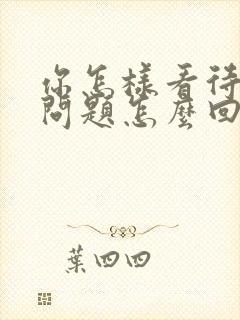 你怎樣看待
問題怎麼回
葉四四